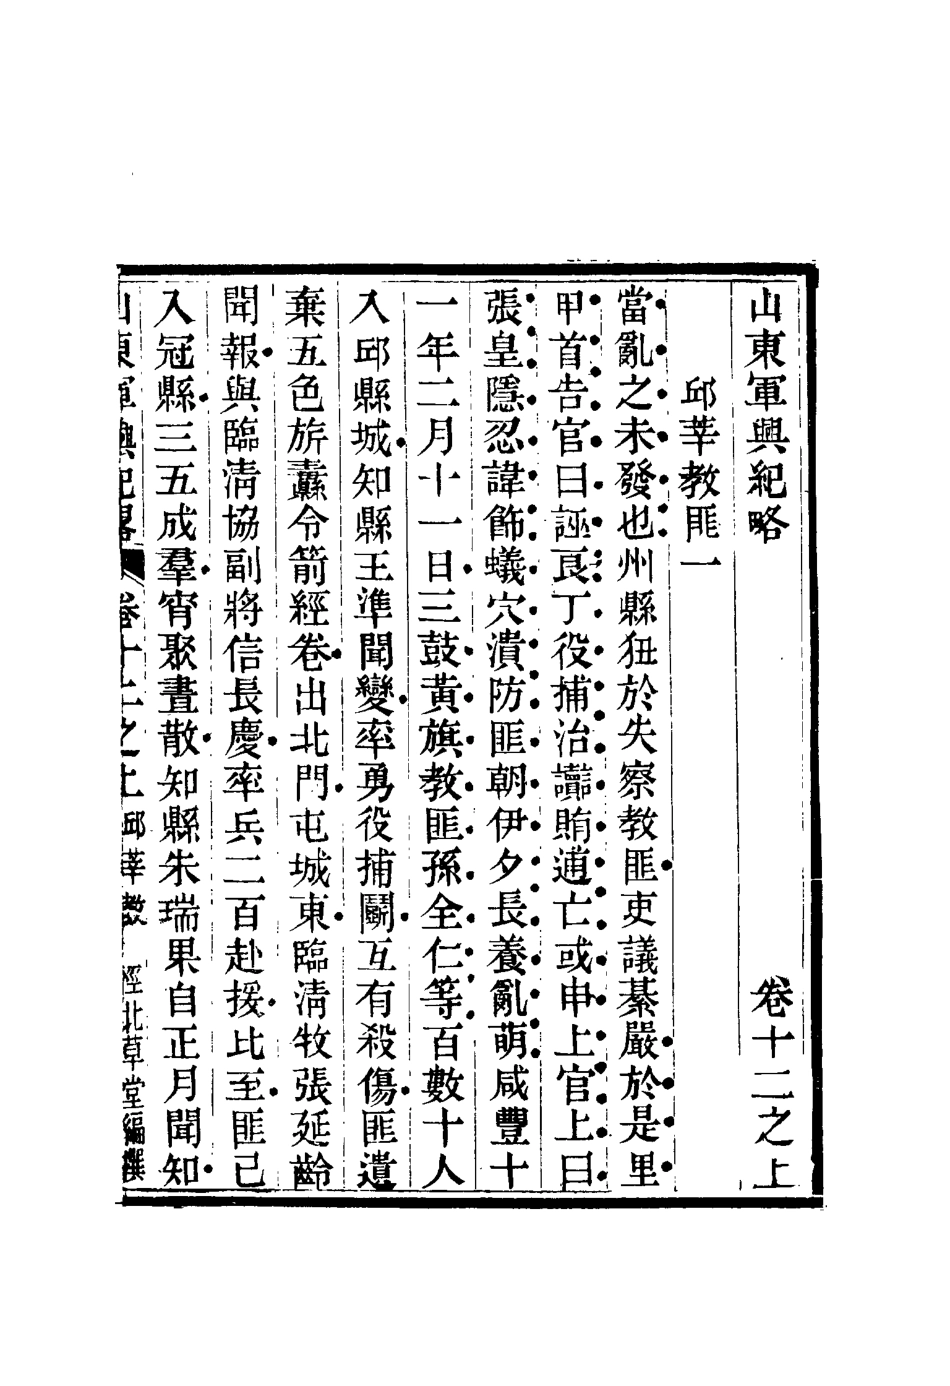 山東軍興紀略 卷十二之上
邱莘教匪一
當亂之未發也州縣狃於失察教匪吏議綦嚴於是里
甲首告官曰誣良丁役捕治讟賄逋亡或申上官上曰
張皇隱忍諱飾蟻穴潰防匪朝伊夕長養亂萌咸豐十
一年二月十一日三鼓黃旗教匪孫全仁等百數十人
入邱縣城知縣王準聞變率勇役捕鬭互有殺傷匪遺
棄五色旂纛令箭經卷出北門屯城東臨清牧張延齡
聞報與臨清協副將信長慶率兵二百赴援比至匪已
入冠縣三五成羣宵聚晝散知縣朱瑞果自正月聞知
山東軍興紀畧 卷十二之上 邱莘教 北草堂編撰